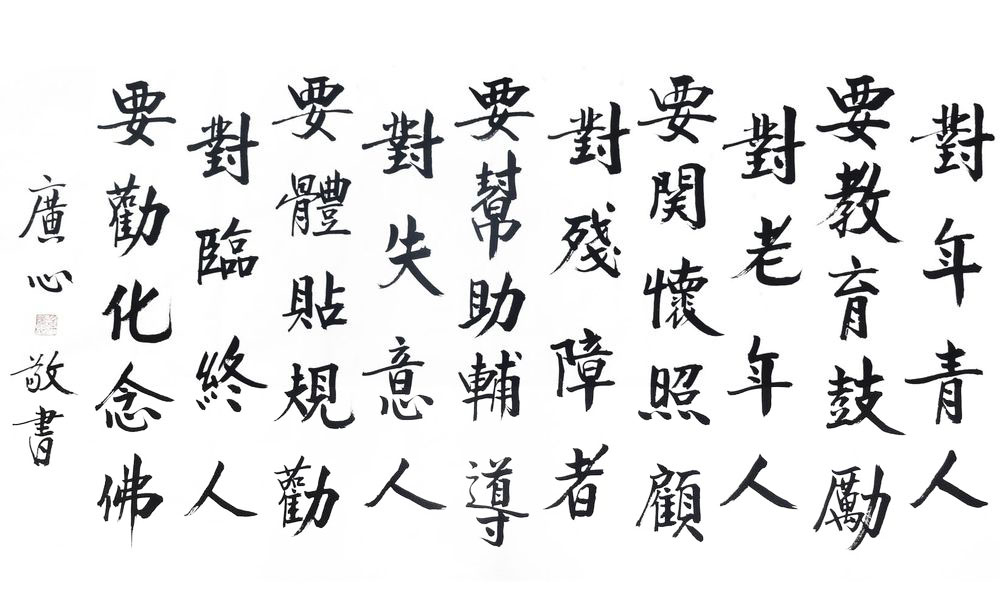 對年青人
要教育鼓勵
對老年人
要関懷照顧
對殘障者
要幫助輔導
對失意人
要體貼規勸
對臨終人
要勸化念佛
廣心敬書